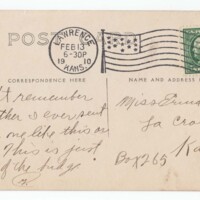 POST
LAWRENCE
FEB 13
6-30P
1910
KANS.
CORRESPONDENCE HERE
NAME AND ADDRESS
't remember
ther I ever sent
one like this or
This is just
of the bridge
Miss
La Cro
Box 265
Ka